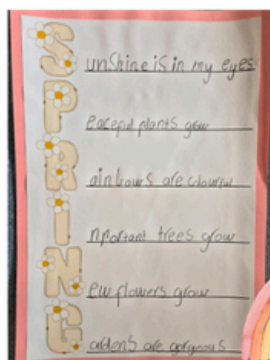 Sunshine is in my eyes
Peaceful plants grow
Rainbows are colourful
Inportant trees grow
New flowers grow
Gardens are gorgeous